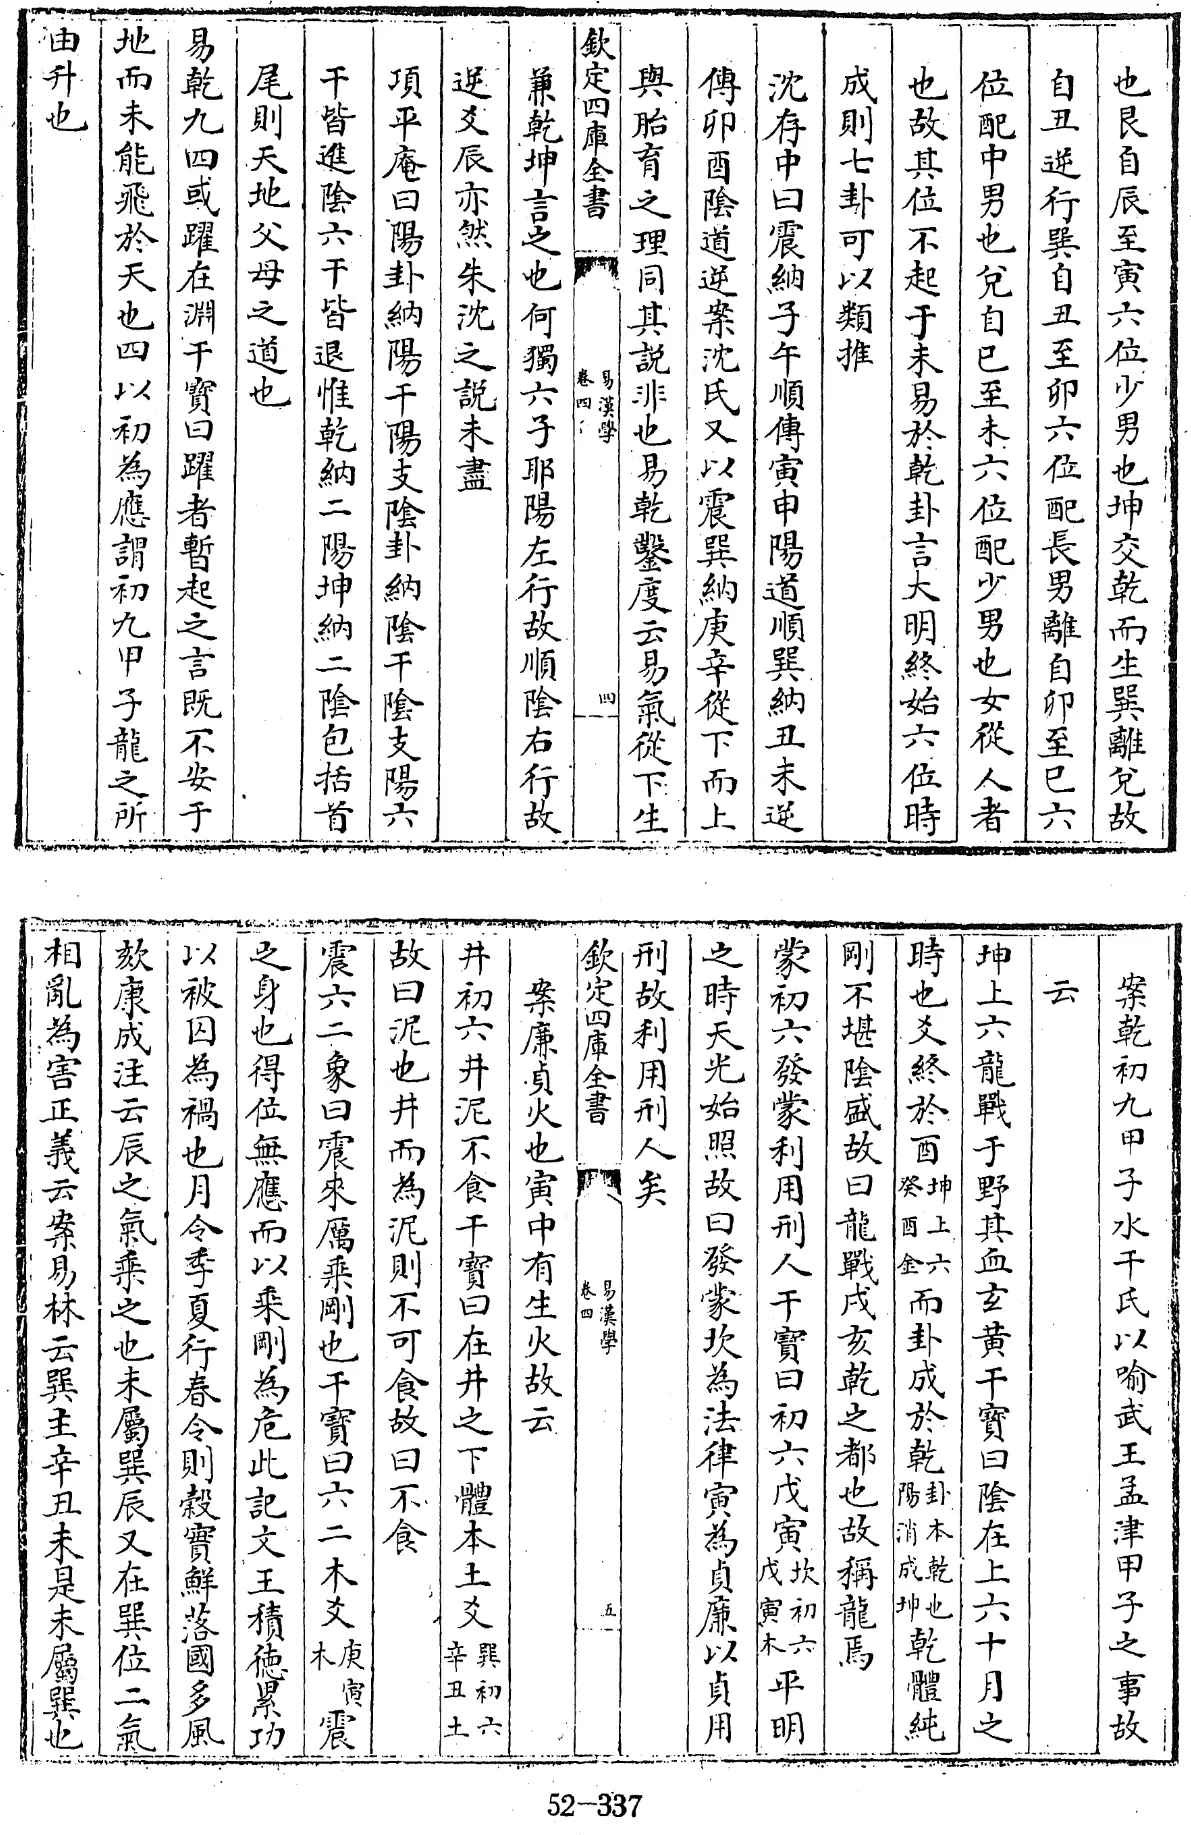 也艮自辰至寅六位少男也坤交乾而生巽離兌故
自丑逆行巽自丑至卯六位配長男離自卯至巳六
位配中男也兌自巳至未六位配少男也女從人者
也故其位不起于未易於乾卦言大明終始六位時
成則七卦可以類推
沈存中曰震納子午順傳寅申陽道順巽納丑未逆
傳卯酉陰道逆案沈氏又以震巽納庚辛從下而上
與胎育之理同其説非也易乾鑿度云易氣從下生
欽定四庫全書
易漢學
卷四
四
兼乾坤言之也何獨六子耶陽左行故順陰右行故
逆爻辰亦然朱沈之説未盡
項平庵曰陽卦納陽干陽支陰卦納陰干陰支陽六
干皆進陰六干皆退惟乾納二陽坤納二陰包括首
尾則天地父母之道也
易乾九四或躍在淵干寶曰躍者暫起之言既不安于
地而未能飛於天也四以初為應謂初九甲子龍之所
由升也
案乾初九甲子水干氏以喻武王孟津甲子之事故
云
坤上六龍戰于野其血玄黄干寶曰陰在上六十月之
時也爻終於酉坤上六癸酉金而卦成於乾卦本乾也陽消成坤乾體純
剛不堪陰盛故曰龍戰戌亥乾之都也故稱龍焉
蒙初六發蒙利用刑人干寶曰初六戊寅坎初六戊寅木平明
之時天光始照故曰發蒙坎為法律寅為貞廉以貞用
刑故利用刑人矣
欽定四庫全書
易漢學
卷四
五
案廉貞火也寅中有生火故云
井初六井泥不食干寶曰在井之下體本土爻巽初六辛丑土
故曰泥也井而為泥則不可食故曰不食
震六二象曰震來厲乘剛也干寶曰六二木爻庚寅木震
之身也得位無應而以乘剛為危此記文王積德累功
以被囚為禍也月令季夏行春令則穀實鮮落國多風
欬康成注云辰之氣乘之也未屬巽辰又在巽位二氣
相亂為害正義云案易林云巽主辛丑未是未屬巽也
52-337